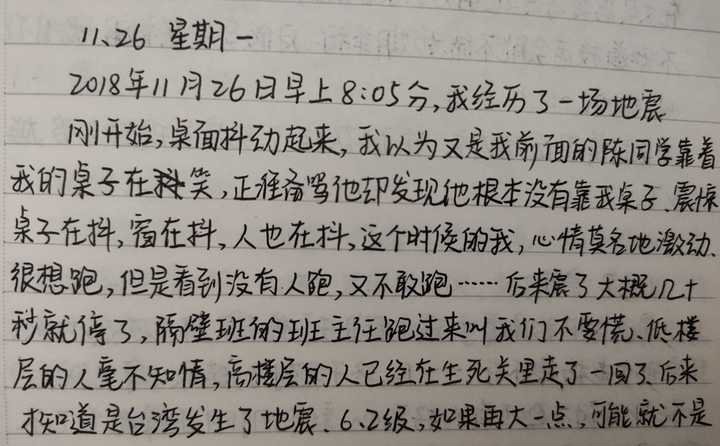 11.26 星期一
2018年11月26日早上8:05分,我经历了一场地震
刚开始,桌面抖动起来,我以为又是我前面的陈同学靠着
我的桌子在抖笑,正准备骂他却发现他根本没有靠我桌子.震惊
桌子在抖,窗在抖,人也在抖,这个时候的我,心情莫名地激动.
很想跑,但是看到没有人跑,又不敢跑……后来震了大概几十
秒就停了,隔壁班的班主任跑过来叫我们不要慌.低楼
层的人毫不知情,高楼层的人已经在生死关里走了一回了.后来
才知道是台湾发生了地震.6.2级,如果再大一点,可能就不是